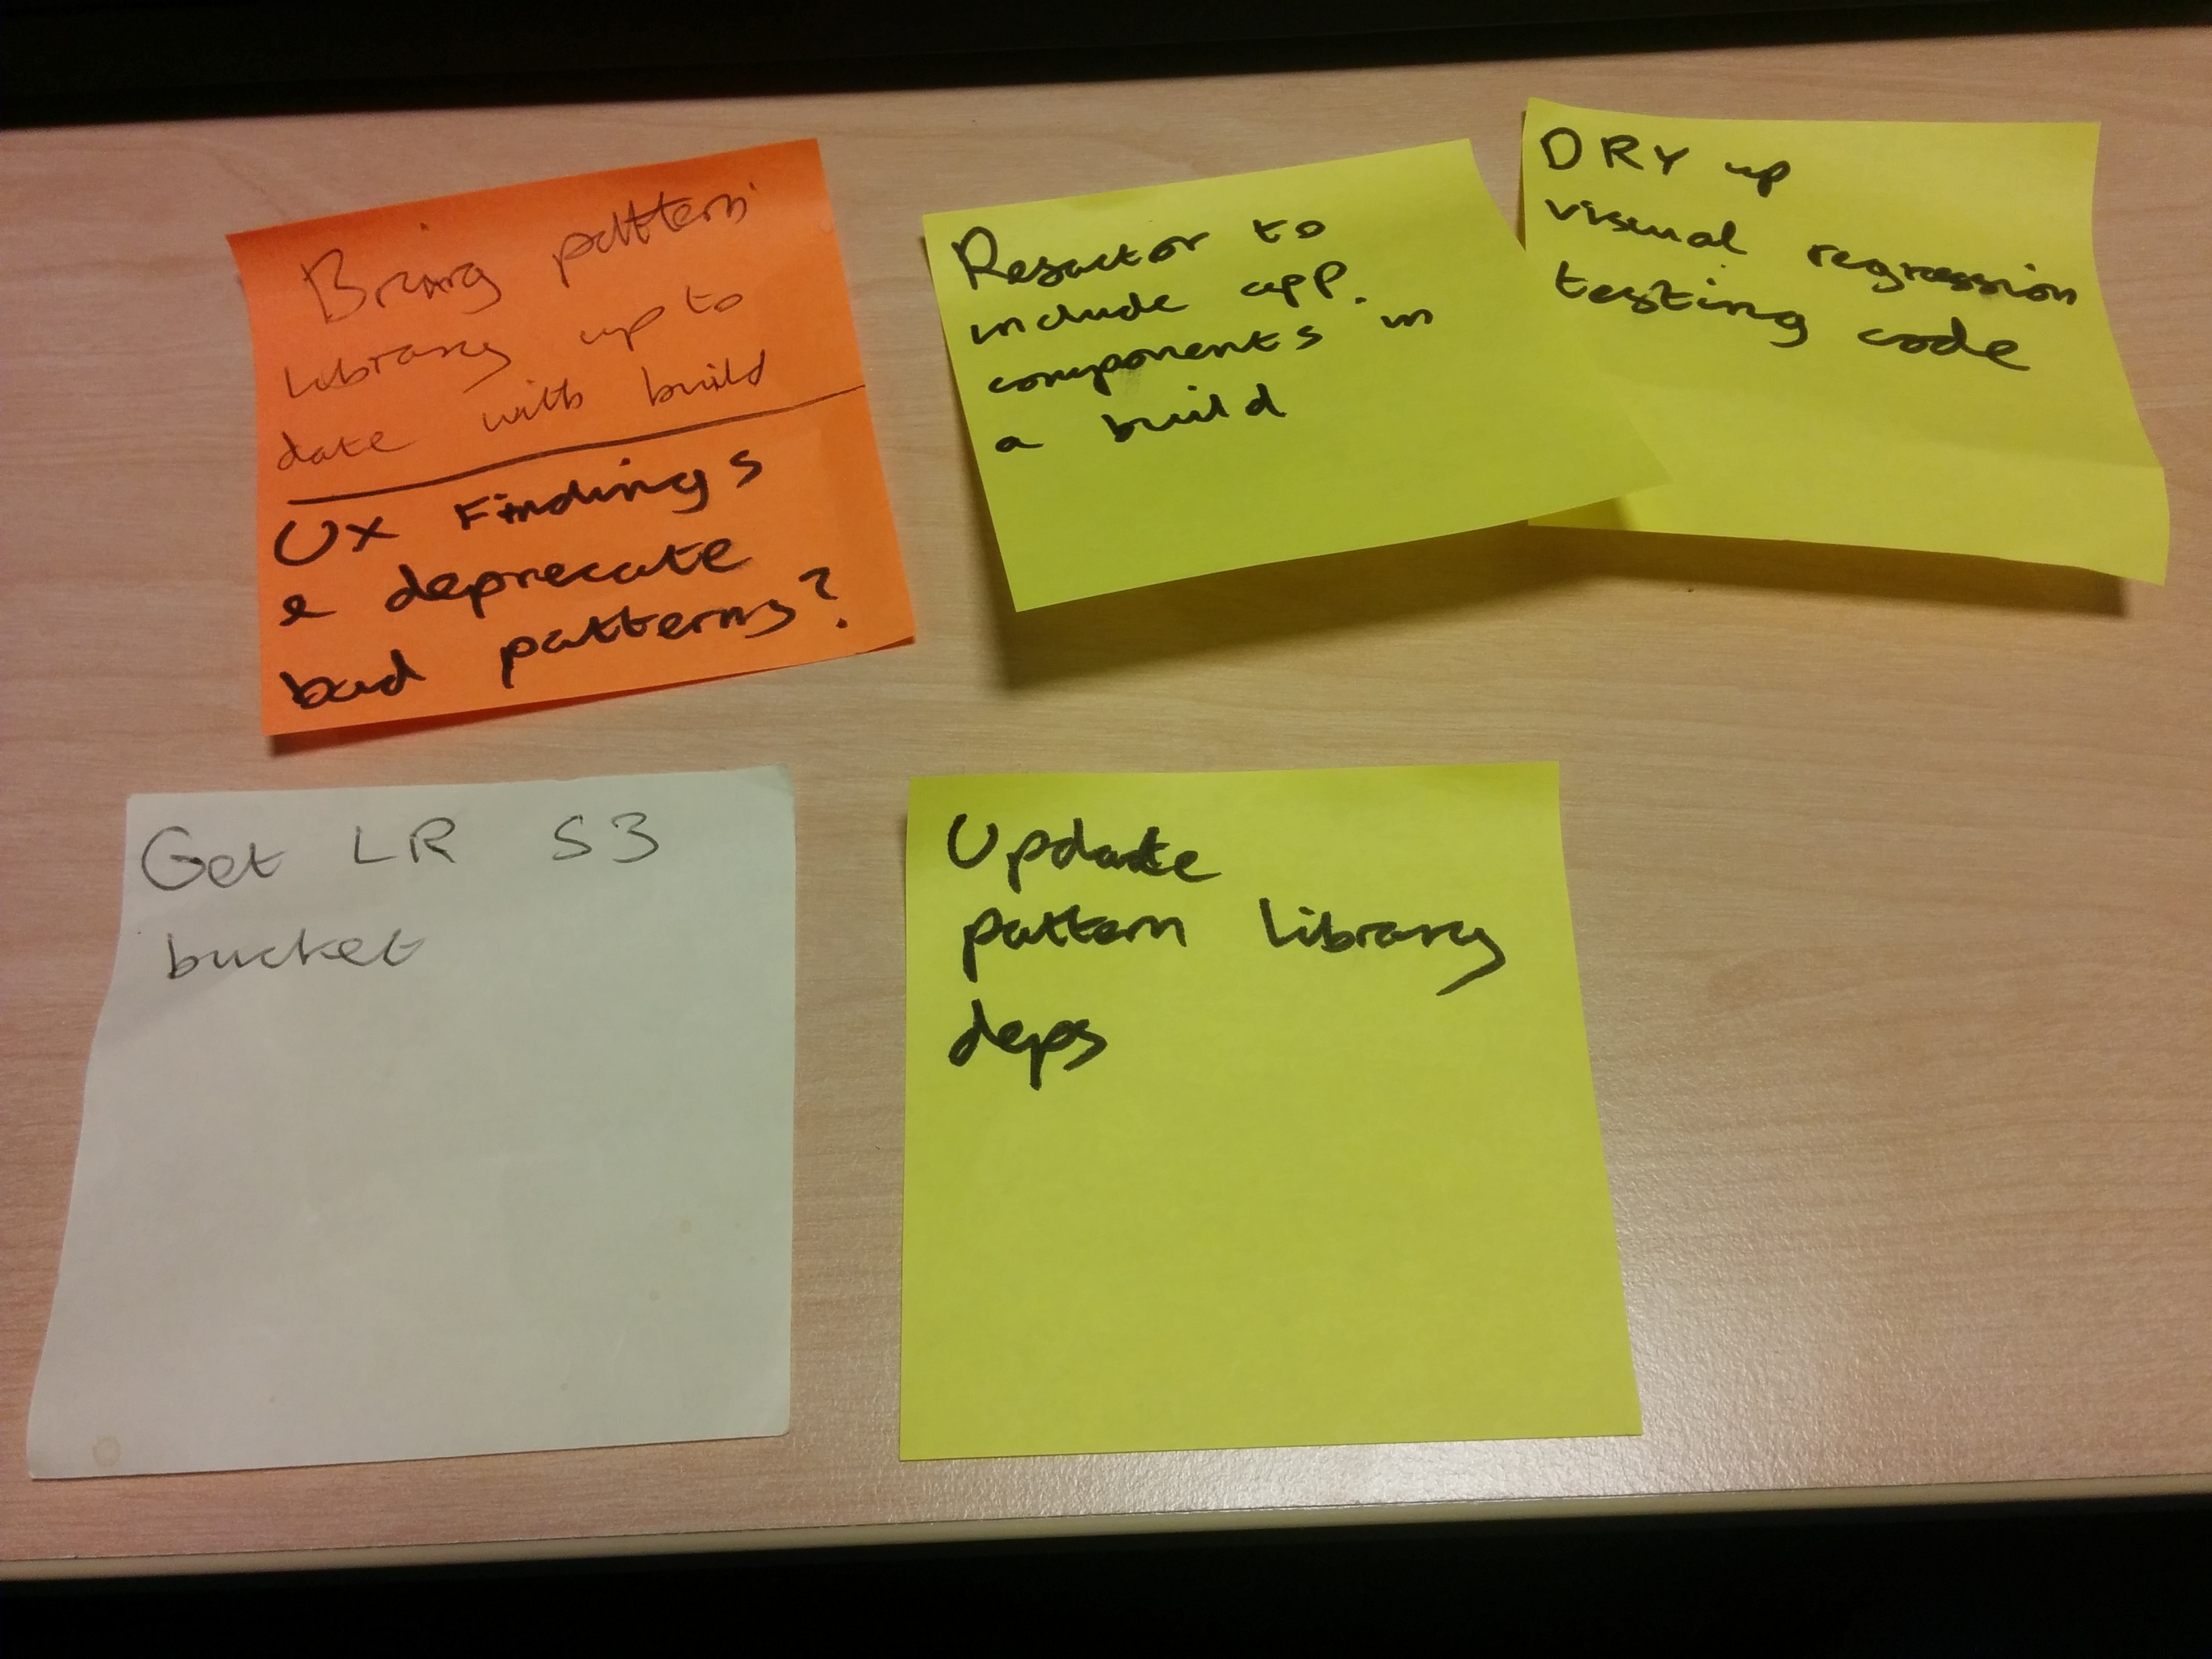 Bring pattern
library up to
date with build
UX Findings
& deprecate
bad patterns?
Refactor to
include app.
components in
a build
DRY up
visual regression
testing code
Get LR S3
bucket
Update
pattern library
deps